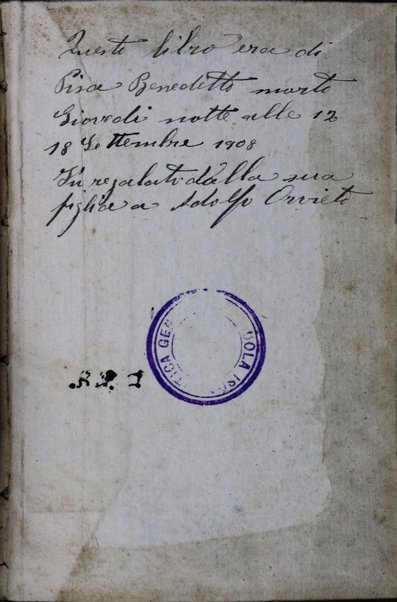 Questo libro era di
Pisa Benedetto morto
Giovedi notte alle 12
18 Settembre 1908
Fu regalato dalla sua
figlia a Adolfo Orvieto
OLA IS
TICA GE